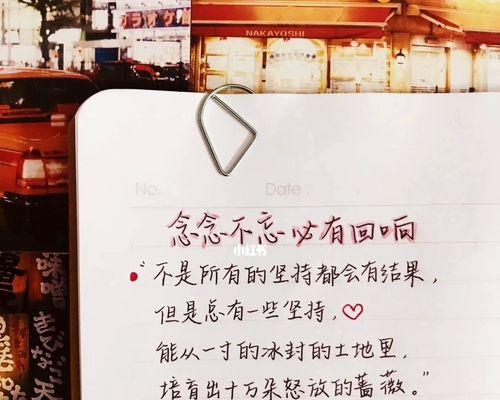 カラオケ
NAKAYOSHI
No.
Date :
念念不忘必有回响
小红书
“不是所有的坚持都会有结果，
但是总有一些坚持，
能从一寸的冰封的土地里，
培育出十万朵怒放的蔷薇。”
味噌